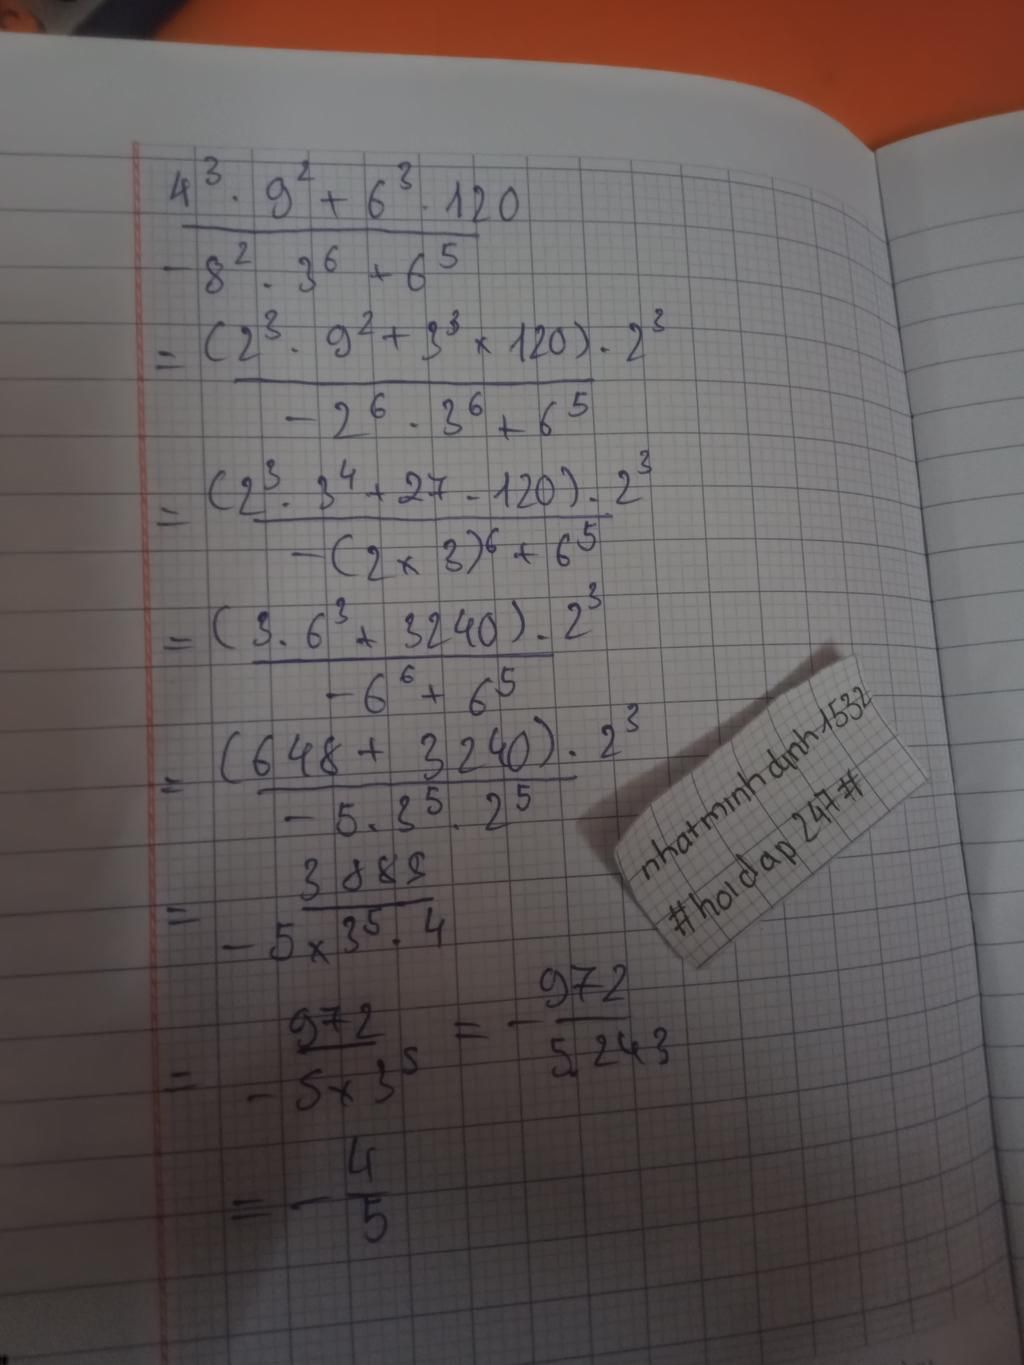 4³ . 9² + 6³ . 120
- 8² . 3⁶ + 6⁵
= (2³ . 9² + 3³ x 120) . 2³
- 2⁶ . 3⁶ + 6⁵
= (2³ . 3⁴ + 27 - 120) . 2³
- (2 x 3)⁶ + 6⁵
= (3 . 6³ + 3240) . 2³
- 6⁶ + 6⁵
= (648 + 3240) . 2³
- 5 . 3⁵ . 2⁵
= 3888
- 5 x 3⁵ . 4
= 972
- 5 x 3⁵
= - 972
5.243
= - 4
5
nhatminhdinh1532
#hoidap247#